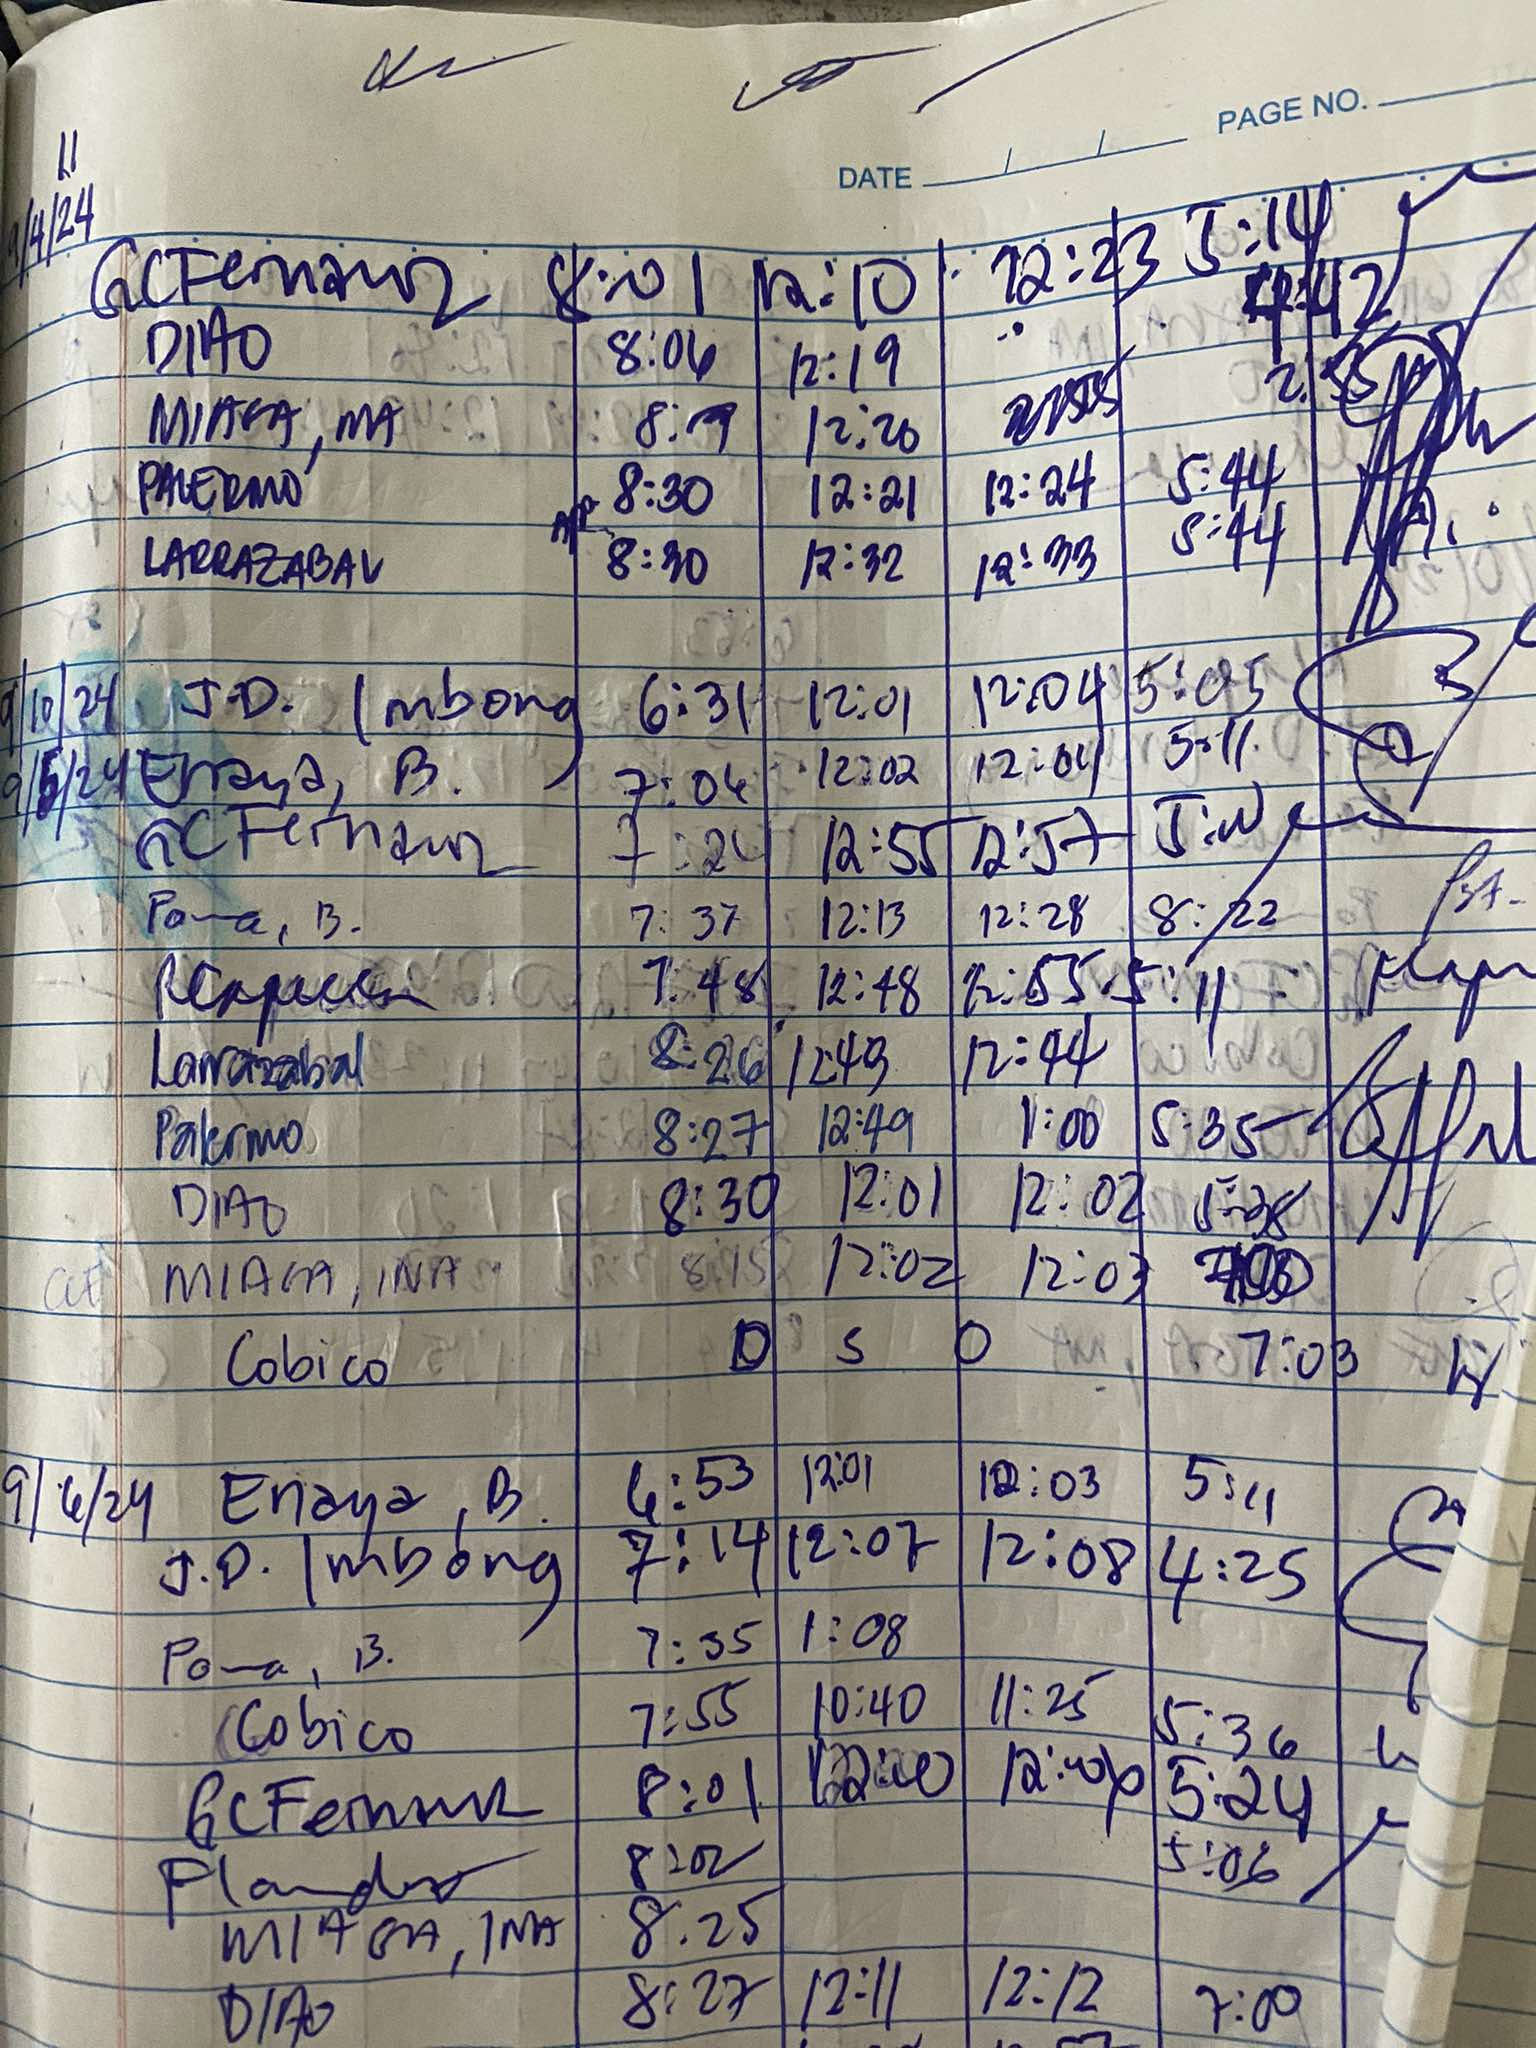 PAGE NO.
DATE / /
11
9/4/24
GCFernanz 8:01 12:10 12:23 5:14
DIAO 8:06 12:19 4:42
MIAGA, INA 8:19 12:20 2:55
PALERMO 8:30 12:21 12:24 5:44
LARRAZABAL 8:30 12:32 12:33 5:44
9/10/24 J.D. Imbong 6:31 12:01 12:04 5:05
9/5/24 Enaya, B. 7:04 12:02 12:04 5:11
GCFernanz 7:24 12:55 12:57
Poma, B. 7:37 12:13 12:28 8:22
7:48 12:48 12:55 5:11
Larrazabal 8:26 12:43 12:44
Palermo 8:27 12:49 1:00 5:35
DIAO 8:30 12:01 12:02 5:28
MIAGA, INA 8:15 12:02 12:03
Cobico D S O 7:03
9/6/24 Enaya, B. 6:53 12:01 12:03 5:11
J.D. Imbong 7:14 12:07 12:08 4:25
Poma, B. 7:35 1:08
Cobico 7:55 10:40 11:25 5:36
GCFernanz 8:01 5:24
8:02 5:06
MIAGA, INA 8:25
DIAO 8:27 12:11 12:12 7:00